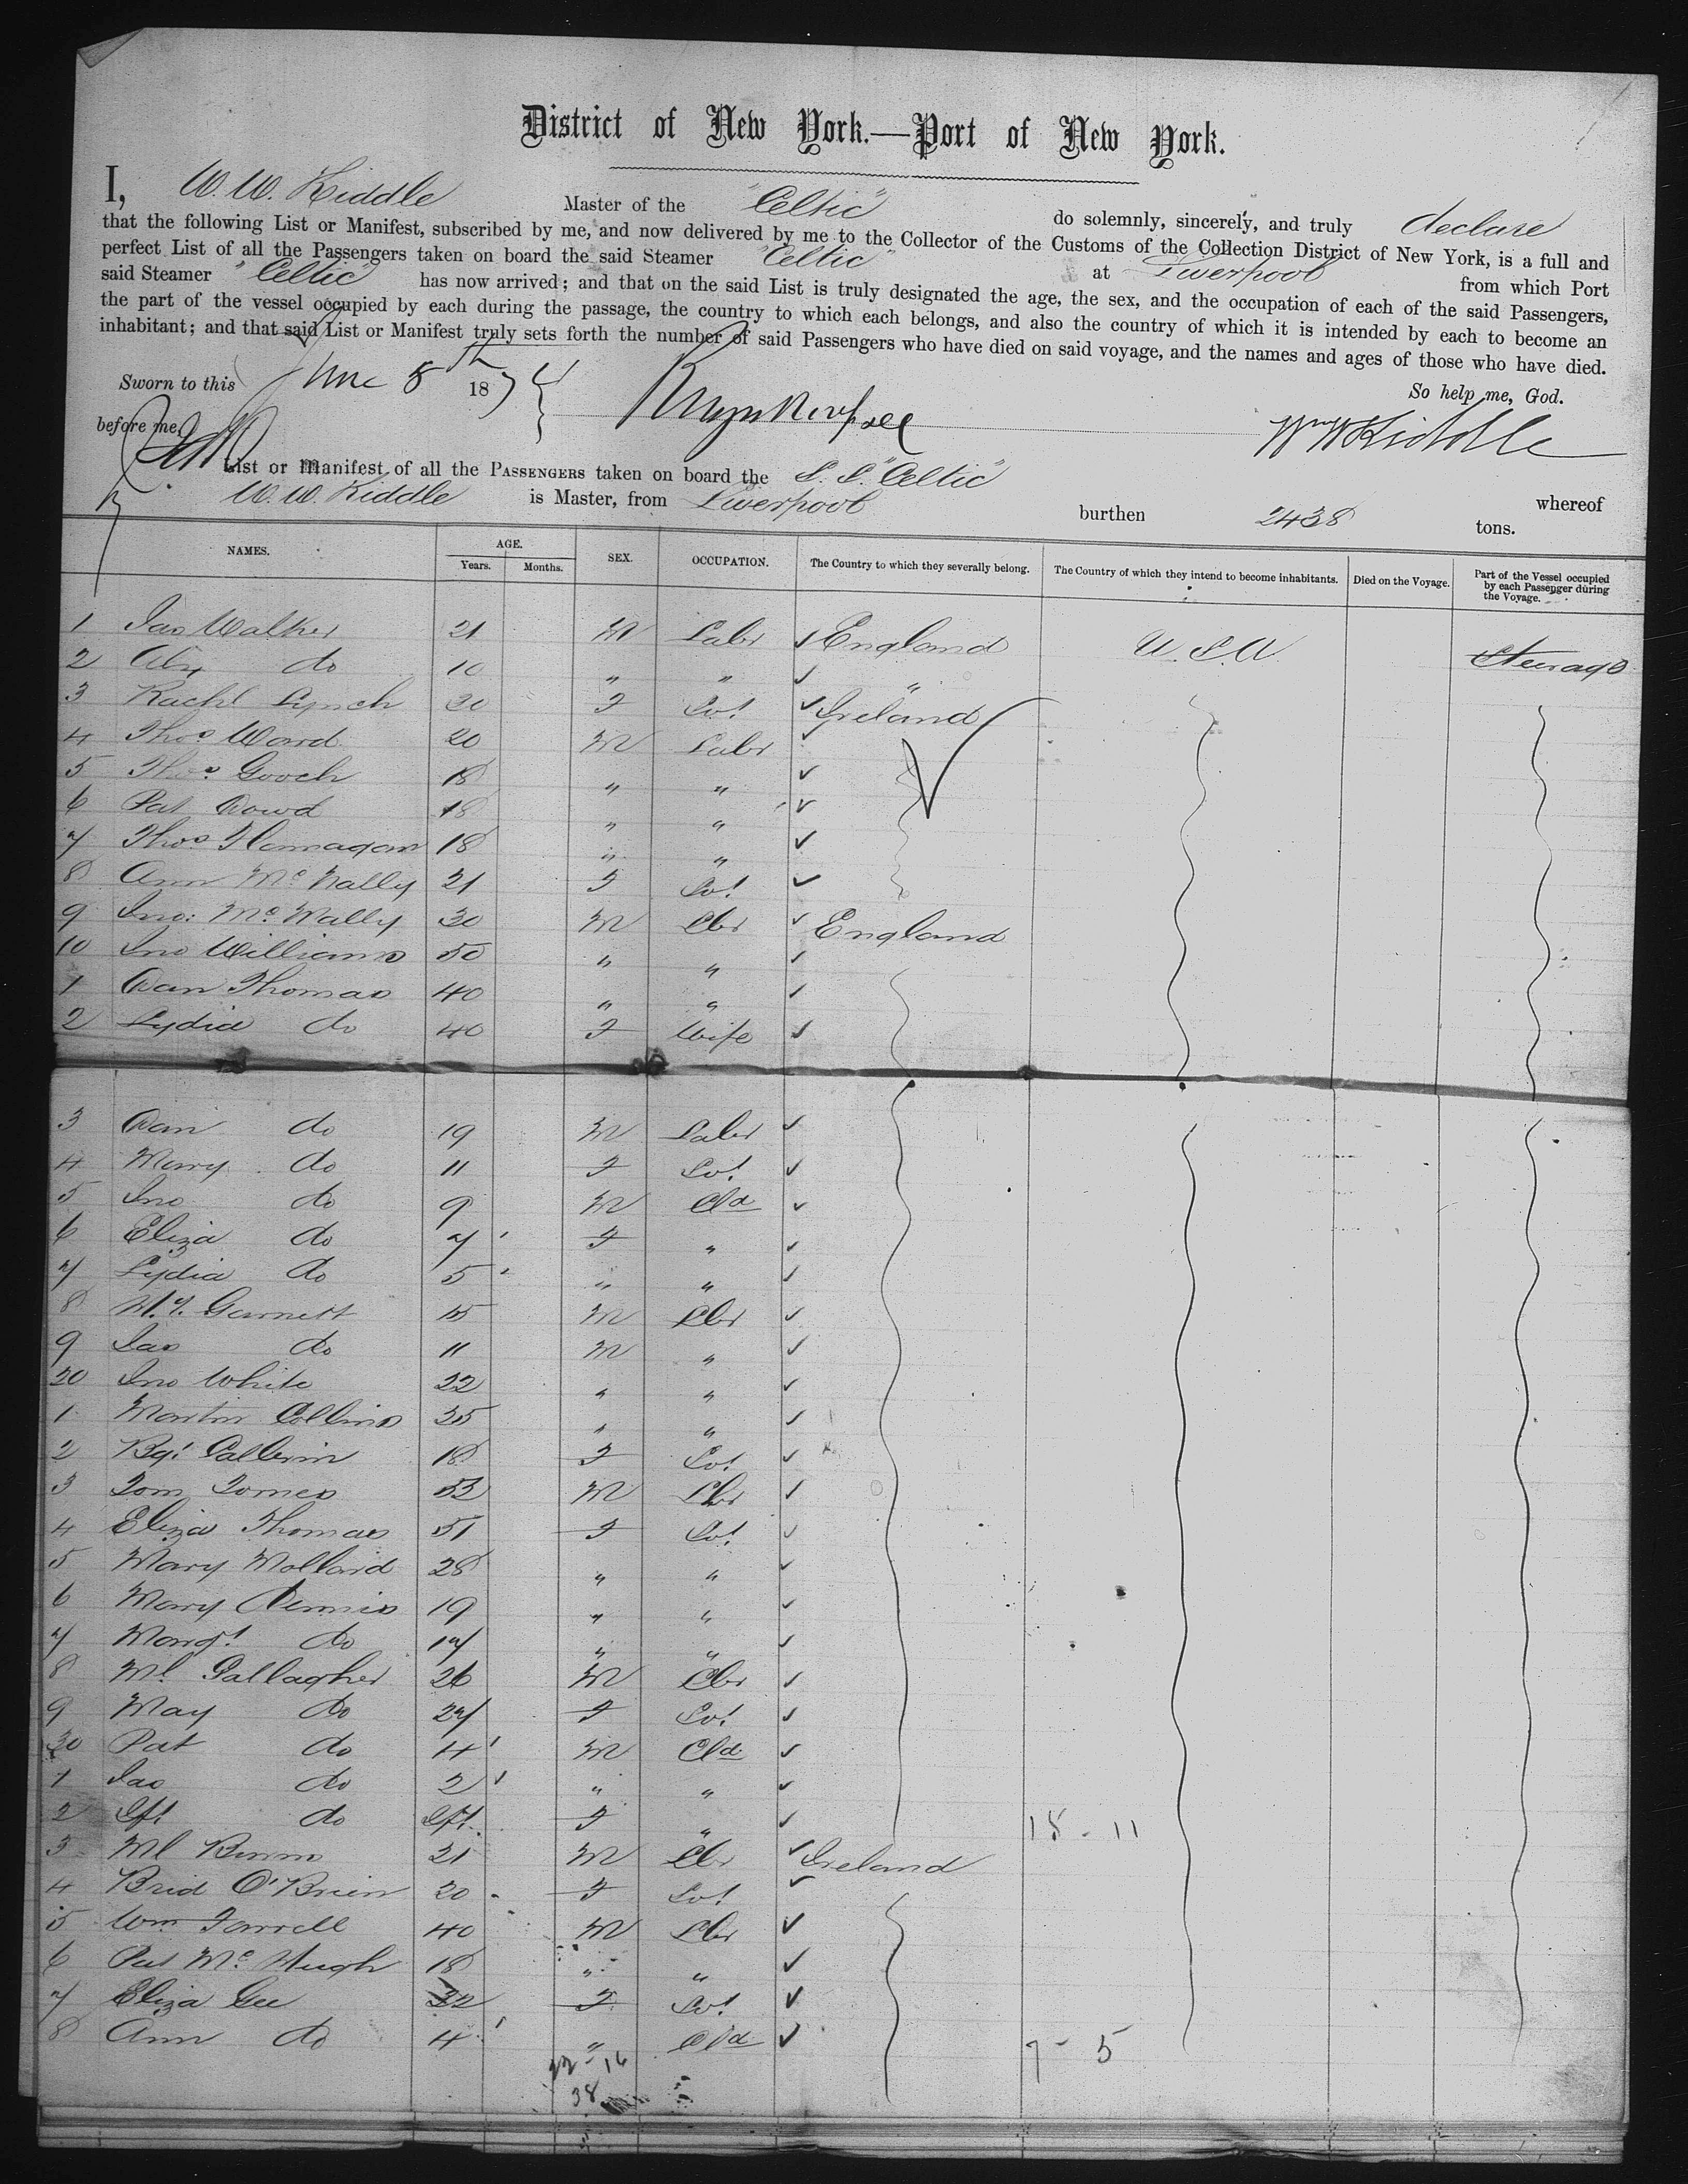 District of New York.—Port of New York.
I, W. W. Kiddle Master of the "Celtic" do solemnly, sincerely, and truly declare
that the following List or Manifest, subscribed by me, and now delivered by me to the Collector of the Customs of the Collection District of New York, is a full and
perfect List of all the Passengers taken on board the said Steamer "Celtic" at Liverpool from which Port
said Steamer "Celtic" has now arrived; and that on the said List is truly designated the age, the sex, and the occupation of each of the said Passengers,
the part of the vessel occupied by each during the passage, the country to which each belongs, and also the country of which it is intended by each to become an
inhabitant; and that said List or Manifest truly sets forth the number of said Passengers who have died on said voyage, and the names and ages of those who have died.
So help me, God.
Sworn to this June 8th 187
before me, WmWKiddle
List or Manifest of all the PASSENGERS taken on board the S. S. "Celtic" whereof
W. W. Kiddle is Master, from Liverpool burthen 2438 tons.
NAMES. AGE. Years. Months. SEX. OCCUPATION. The Country to which they severally belong. The Country of which they intend to become inhabitants. Died on the Voyage. Part of the Vessel occupied by each Passenger during the Voyage.
1 Jas Walker 21 M Labr England U.S.A. Steerage
2 Alex do 10 " " "
3 Rachl Lynch 20 F Svt Ireland
4 Thos Ward 20 M Labr
5 Thos Gooch 18 " "
6 Pat Dowd 18 " "
7 Thos Flannagan 18 " "
8 Ann McNally 21 F Svt
9 Jno: McNally 30 M Lbr England
10 Jno Williams 50 " "
1 Dan Thomas 40 " "
2 Lydia do 40 F Wife
3 Dan do 19 M Labr
4 Mary do 11 F Svt
5 Jno do 9 M Cld
6 Eliza do 7 F "
7 Lydia do 5 " "
8 Garnett 15 M Lbr
9 Jas do 11 M "
20 Jno White 22 " "
1 Martin Collins 35 " "
2 Bgt 18 F Svt
3 Tom 53 M Lbr
4 Eliza Thomas 51 F Svt
5 Mary Mollard 28 " "
6 Mary Dennis 19 " "
7 Margt do 17 " "
8 Ml Gallagher 26 M Lbr
9 May do 27 F Svt
30 Pat do 4 M Cld
1 Jas do 2 " "
2 Ift do Ift. F " 18 - 11
3 Ml 21 M Lbr Ireland
4 Brid O'Brien 20 F Svt
5 Wm Farrell 40 M Lbr
6 Pat McHugh 18 " "
7 Eliza Gee 32 F Svt
8 Ann do 4 " Cld 7 - 5
22 - 16
38